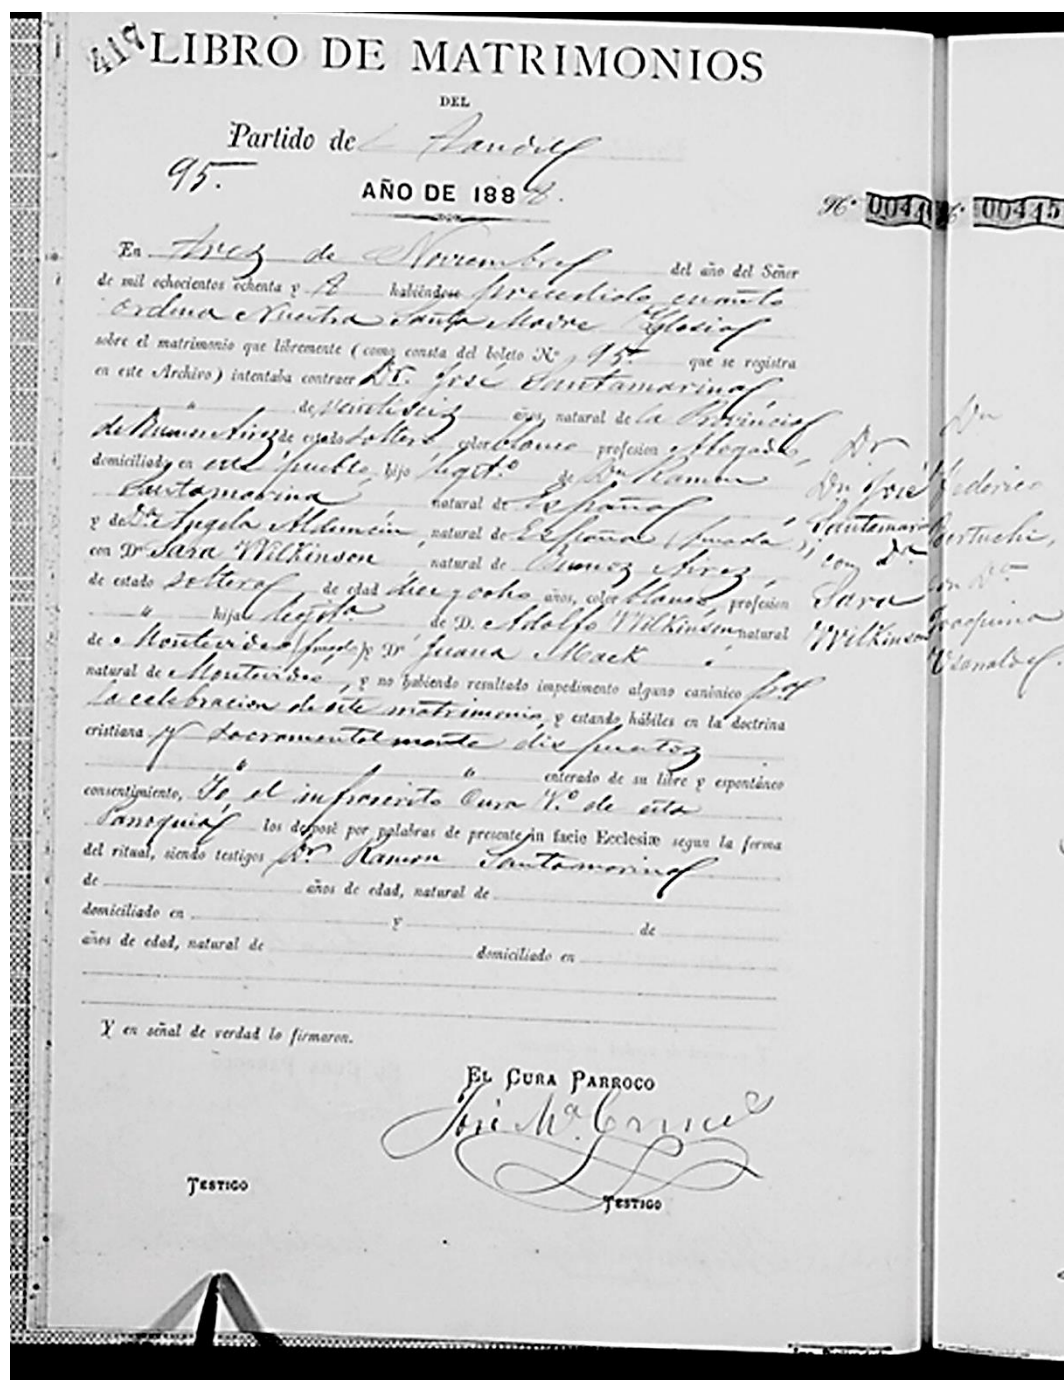 417
LIBRO DE MATRIMONIOS
DEL
Partido de Tandil
95.
AÑO DE 1888.
En trez de Noviembre del año del Señor
de mil ochocientos ochenta y 8 habiéndose precedido cuanto
ordena Nuestra Santa Madre Yglesia
sobre el matrimonio que libremente (como consta del boleto N.º 95. que se registra
en este Archivo) intentaba contraer Dr. José Santamarina
" de veintiseiz años, natural de la Provincia
de Buenos Airez de estado soltero color blanco profesion Abogado,
domiciliado en este pueblo, hijo legit.º de Dn Ramon
Santamarina natural de España
y de Dª. Angela Alduncin, natural de España (finada);
con Dª Sara Wilkinson, natural de Buenoz Airez,
de estado soltera de edad diez y ocho años, color blanco, profesion
" hija legit.ª de D. Adolfo Wilkinson natural
de Montevideo (finado) y Dª Juana Mack "
natural de Montevideo, y no habiendo resultado impedimento alguno canónico para
la celebracion de este matrimonio, y estando hábiles en la doctrina
cristiana y sacramentalmente dispuestoz
" " enterado de su libre y espontáneo
consentimiento, Yo el infrascrito Cura V.º de esta
Parroquia los desposé por palabras de presente in facie Ecclesiæ segun la forma
del ritual, siendo testigos Dn. Ramon Santamarina
de años de edad, natural de
domiciliado en y de
años de edad, natural de domiciliado en
Y en señal de verdad lo firmaron.
EL CURA PARROCO
José Mª.
TESTIGO
TESTIGO
Nº 0044
Dr
Dn José
Santamarina
con dª
Sara
Wilkinson
Nº 00445
Dn
Federico
Bertuchi,
con Dª
Joaquina